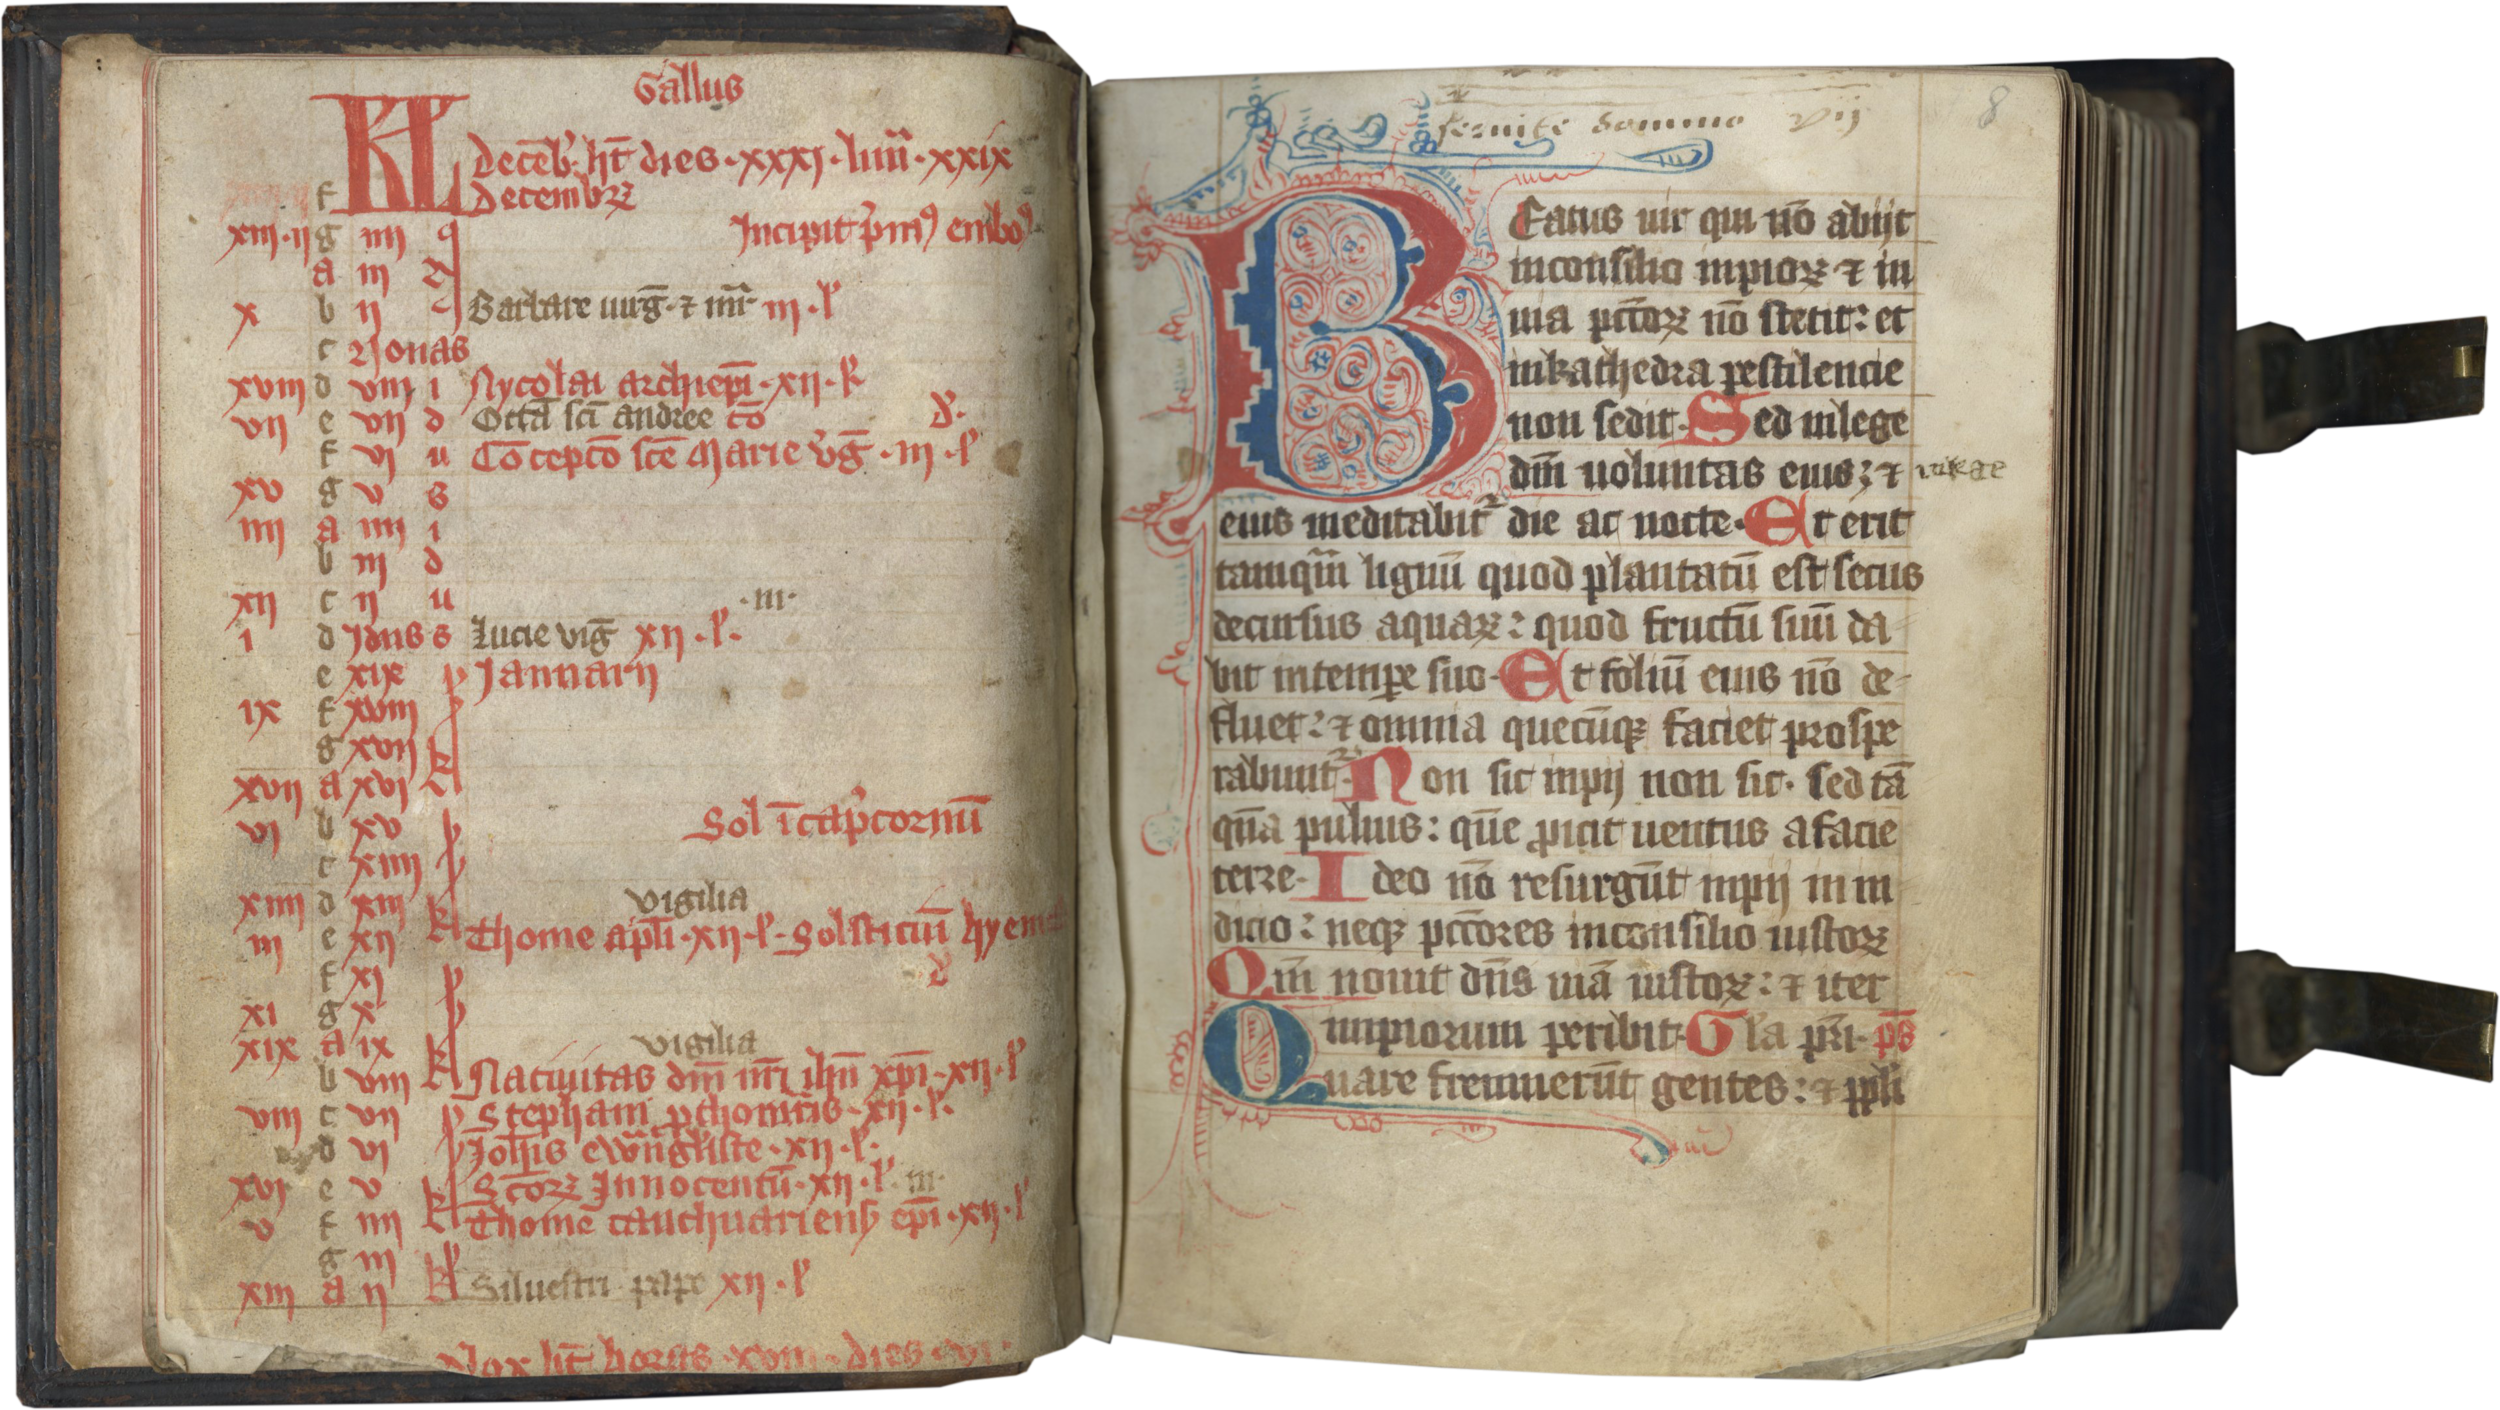 Gallus
KL Decēb̛ ht̄ dies · xxxj · lun̄ · xxix
f decembrꝝ
xiii · ii g iiii q Incipit p̛mꝰ embo
a iii
x b ii Barbare uirḡ · ⁊ mr̄ iii · l̛
c Nonas
xviii d viii i Nycolai archiep̄i · xii · l̛
vii e vii d Octā sc̄i andree cō d̛.
f vi u Cōcepcō sc̄e Marie v̛ḡ · iii · l̛
xv g v s
iiii a iiii i
b iii d
xii c ii u · iii ·
i d Idus s Lucie virḡ xii · l̛ ·
e xix p Ianuarii
ix f xviii p
g xvii
xvii a xvi
vi b xv p Sol ī cap̛cornū
c xiiii p
xiiii d xiii vigilia
iii e xii Thome apl̄i · xii · l̛ · Solsticiū hyem
f xi p d̛
xi g x p
xix a ix vigilia
b viii Natiuitas dn̄i nr̄i ihū xp̄i · xii · l̛
viii c vii p Stephani p̛thom̄ris · xii · l̛ ·
d vi p Ioh̄is ewāngl̛iste · xii · l̛ ·
xvi e v Sc̄orꝝ Innocentū · xii · l̛ · iii ·
v f iiii Thome cantuariens̄ ep̄i · xii · l̛
g iii
xiii a ii Siluestri pape xii · l̛
Nox ht̄ horas · xviii · dies · vi ·
seruite domino vij
8
Beatus uir qui nō abijt
inconsilio inpiorꝝ ⁊ in
uia pcc̄orꝝ nō stetit: et
inkathedra pestilencie
non sedit. Sed inlege
dn̄i uoluntas eius; ⁊ in lege
eius meditabit̛ die ac nocte. Et erit
tamqm̄ lignū quod plantatū est secus
decursus aquarꝝ: quod fructū suū da-
bit intempꝑe suo. Et foliū eius nō de-
fluet: ⁊ omnia quecūqꝫ faciet prospe
rabunt̛. Non sic inpij non sic. sed tā
qn̄a puluis: quē ꝓicit uentus afacie
terre. Ideo nō resurgūt inpij in iu
dicio: neqꝫ pcc̄ores inconsilio iustorꝝ
Qm̄ nouit dn̄s uiā iustorꝝ: ⁊ iter
impiorum peribit. Gl̄a pr̄i. ps̄
Quare fremuerūt gentes: ⁊ ppl̄i